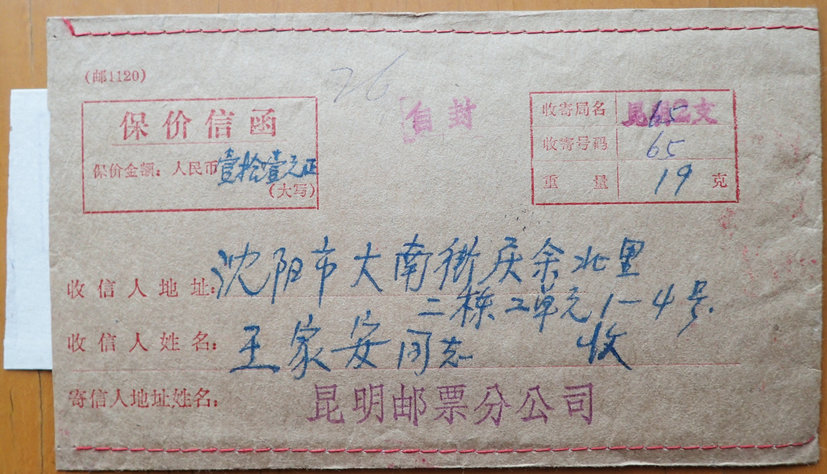 (邮1120)
26
自封
保价信函
保价金额：人民币壹拾壹元正
(大写)
收寄局名
收寄号码 65
重量 19 克
收信人地址：沈阳市大南街庆余北里
二栋2单元1-4号.
收信人姓名：王家安同志 收
寄信人地址姓名： 昆明邮票分公司